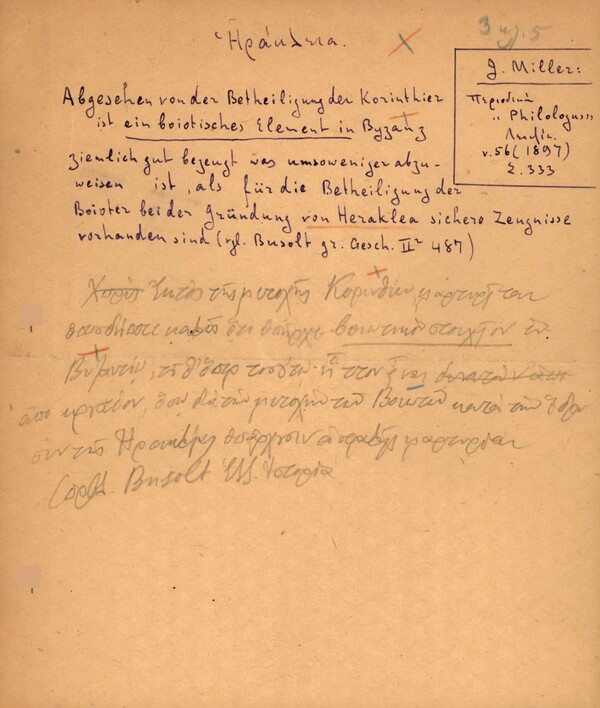 Ἡράκλεια.
J. Miller:
Περιοδικὸ
Philologus
v. 56 (1897)
Σ. 333
Abgesehen von der Betheiligung der Korinthier
ist ein boiotisches Element in Byzanz
ziemlich gut bezeugt was umsoweniger abzu-
weisen ist, als für die Betheiligung der
Boioter bei der Gründung von Heraklea sichere Zeugnisse
vorhanden sind (vgl. Busolt gr. Gesch. II² 487)
Ἐκτὸς τῆς μετοχῆς Κορινθίων
ὅτι ὑπῆρχε βοιωτικὸν στοιχεῖον ἐν
Βυζαντίῳ,
διὰ τὴν μετοχὴν τῶν Βοιωτῶν κατὰ τὴν ἵδρυ
σιν τῆς Ἡρακλείας ὑπάρχουν ἀσφαλεῖς μαρτυρίαι
Busolt Ἑλλ. Ἱστορία